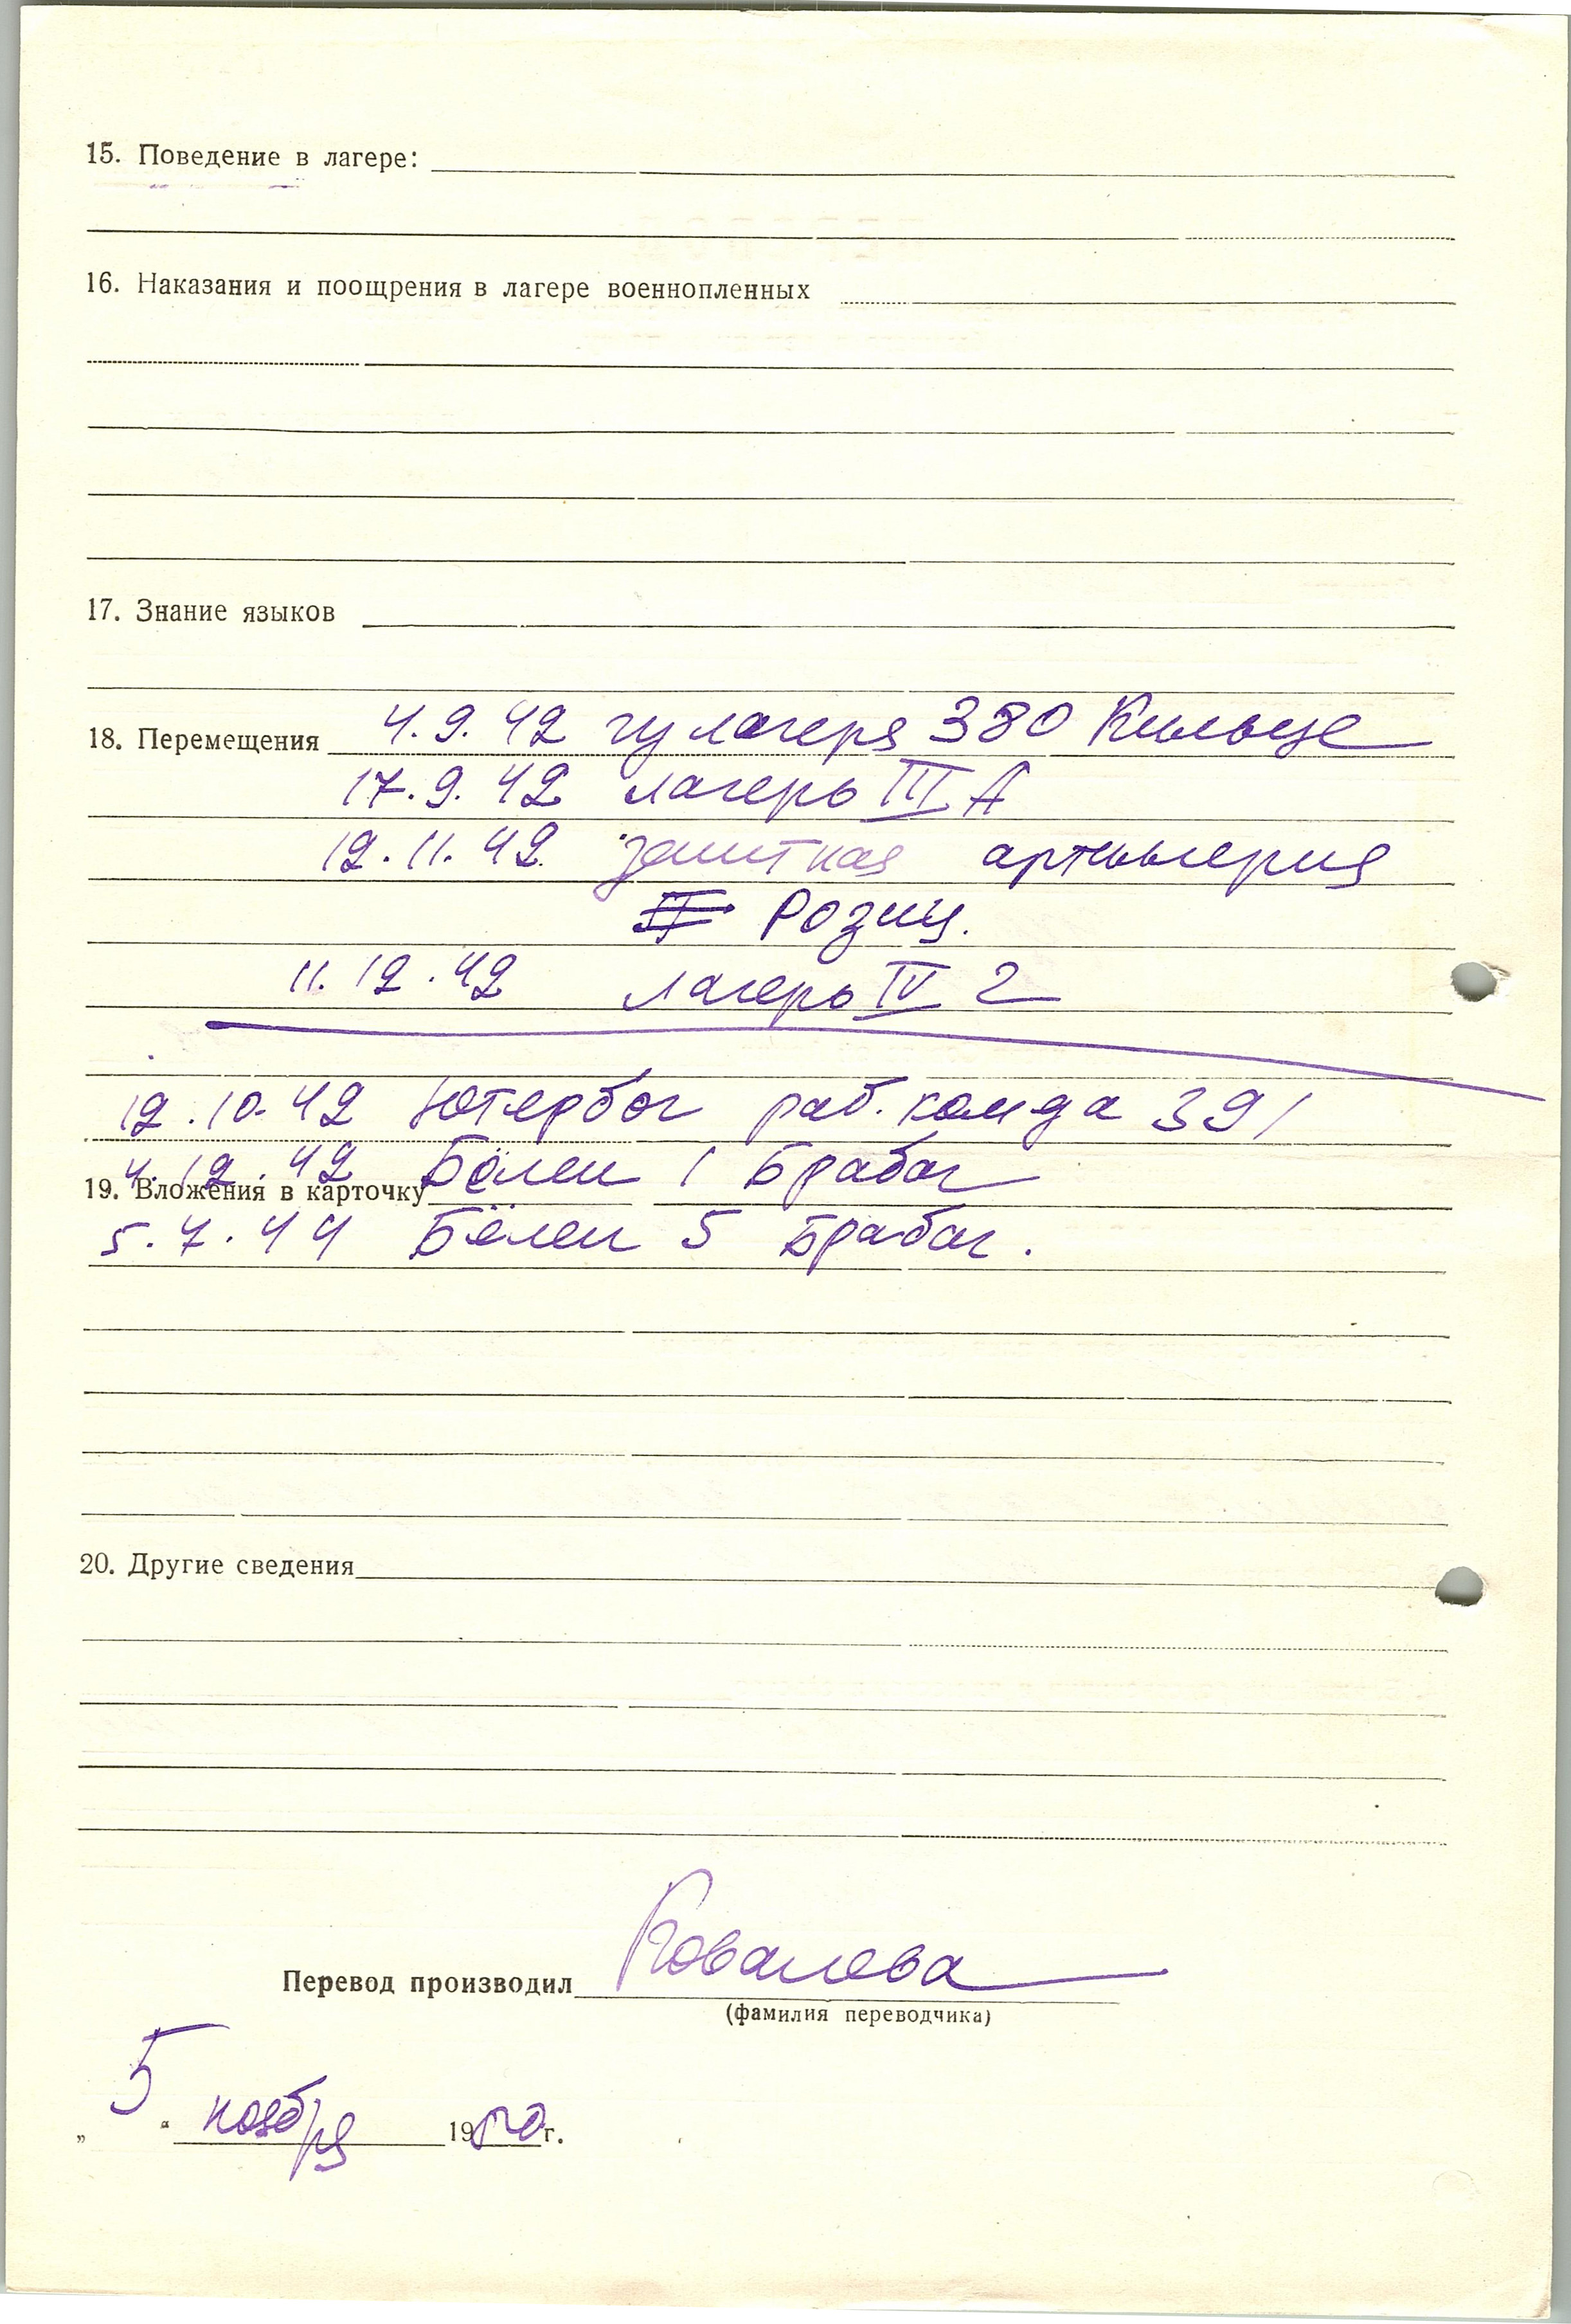 15. Поведение в лагере:
16. Наказания и поощрения в лагере военнопленных
17. Знание языков
18. Перемещения 4.9.42 из лагеря 380 Кильце
17.9.42 лагерь III А
12.11.42 зенитная артилерия
Розиц.
11.12.42 лагерь IV г
12.10.42 Ютербог раб. комда 391
4.12.42 Бёлен 1 Брабаг
19. Вложения в карточку
5.7.44 Бёлен 5 Брабаг.
20. Другие сведения
Перевод производил Ковалева
(фамилия переводчика)
„5“ ноября 1950 г.